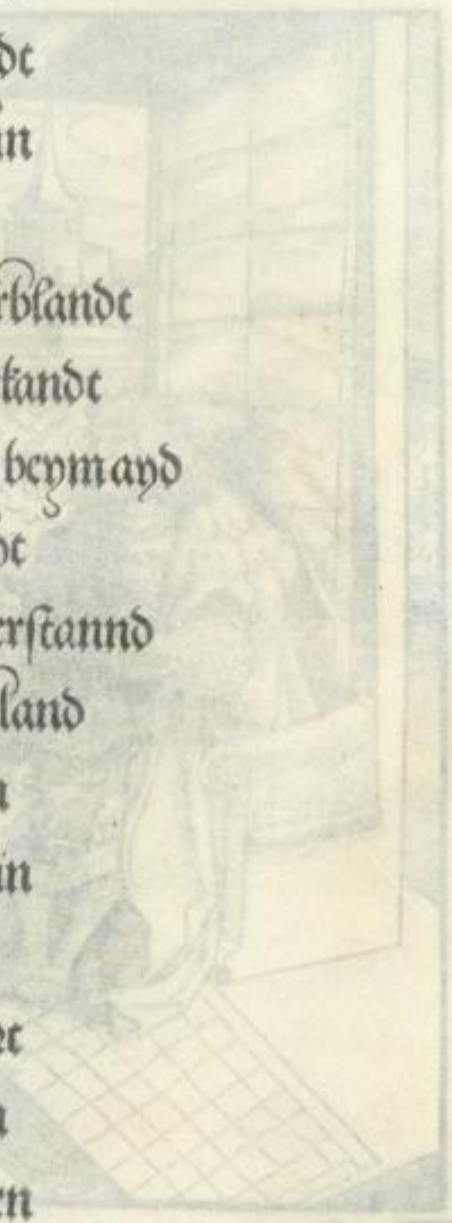 dt
in
rblandt
kandt
beymayd
ht
erstannd
land
n
in
et
n
en